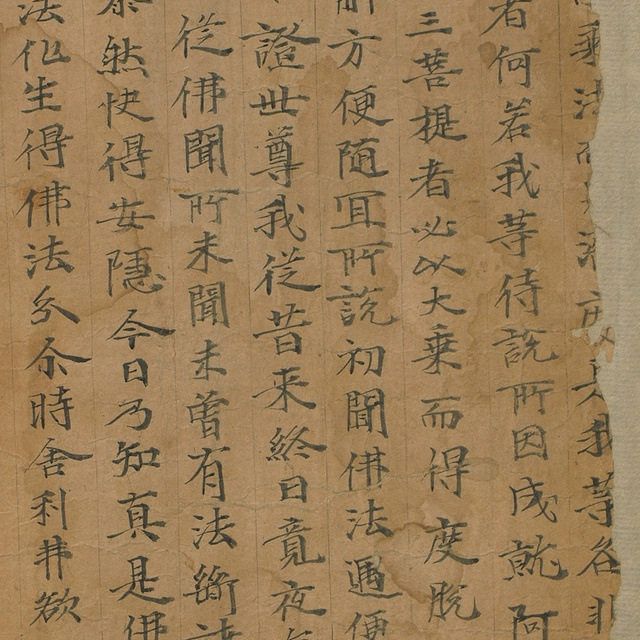 乘法而濟度我等咎非
者何若我等待說所因成就阿
三菩提者必以大乘而得度脫
方便随冝所說初聞佛法遇便
證世尊我從昔來終日竟夜
從佛聞所未聞未曾有法斷諸
然快得安隱今日乃知真是佛
法化生得佛法分尒時舍利弗欲